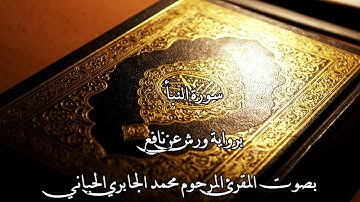 سورة النبأ
برواية ورش عن نافع
بصوت المقرئ المرحوم محمد الجابري الحياني